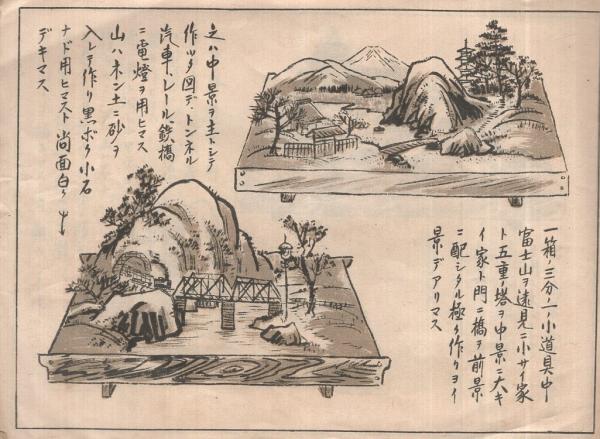 一箱ノ三分ノ一ノ小道具中
富士山ヲ遠見ニ小サイ家
ト五重ノ塔ヲ中景ニ大キ
イ家ト門ニ橋ヲ前景
ニ配シタル極ク作リヨイ
景デアリマス
之ハ中景ヲ主トシテ
作ッタ図デ、トンネル
汽車、レール、鉄橋
ニ電燈ヲ用ヒマス
山ハネン土ニ砂ヲ
入レテ作リ黒ボク小石
ナド用ヒマスト尚面白ク
デキマス